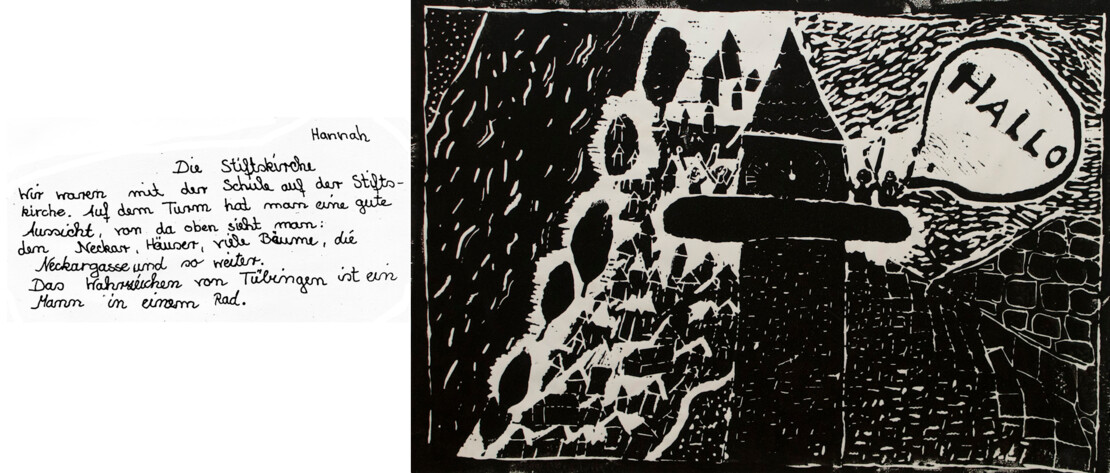 Hannah
Die Stiftskirche
Wir waren mit der Schule auf der Stifts-
kirche. Auf dem Turm hat man eine gute
Aussicht, von da oben sieht man:
den Neckar, Häuser, viele Bäume, die
Neckargasse und so weiter.
Das Wahrzeichen von Tübingen ist ein
Mann in einem Rad.
HALLO